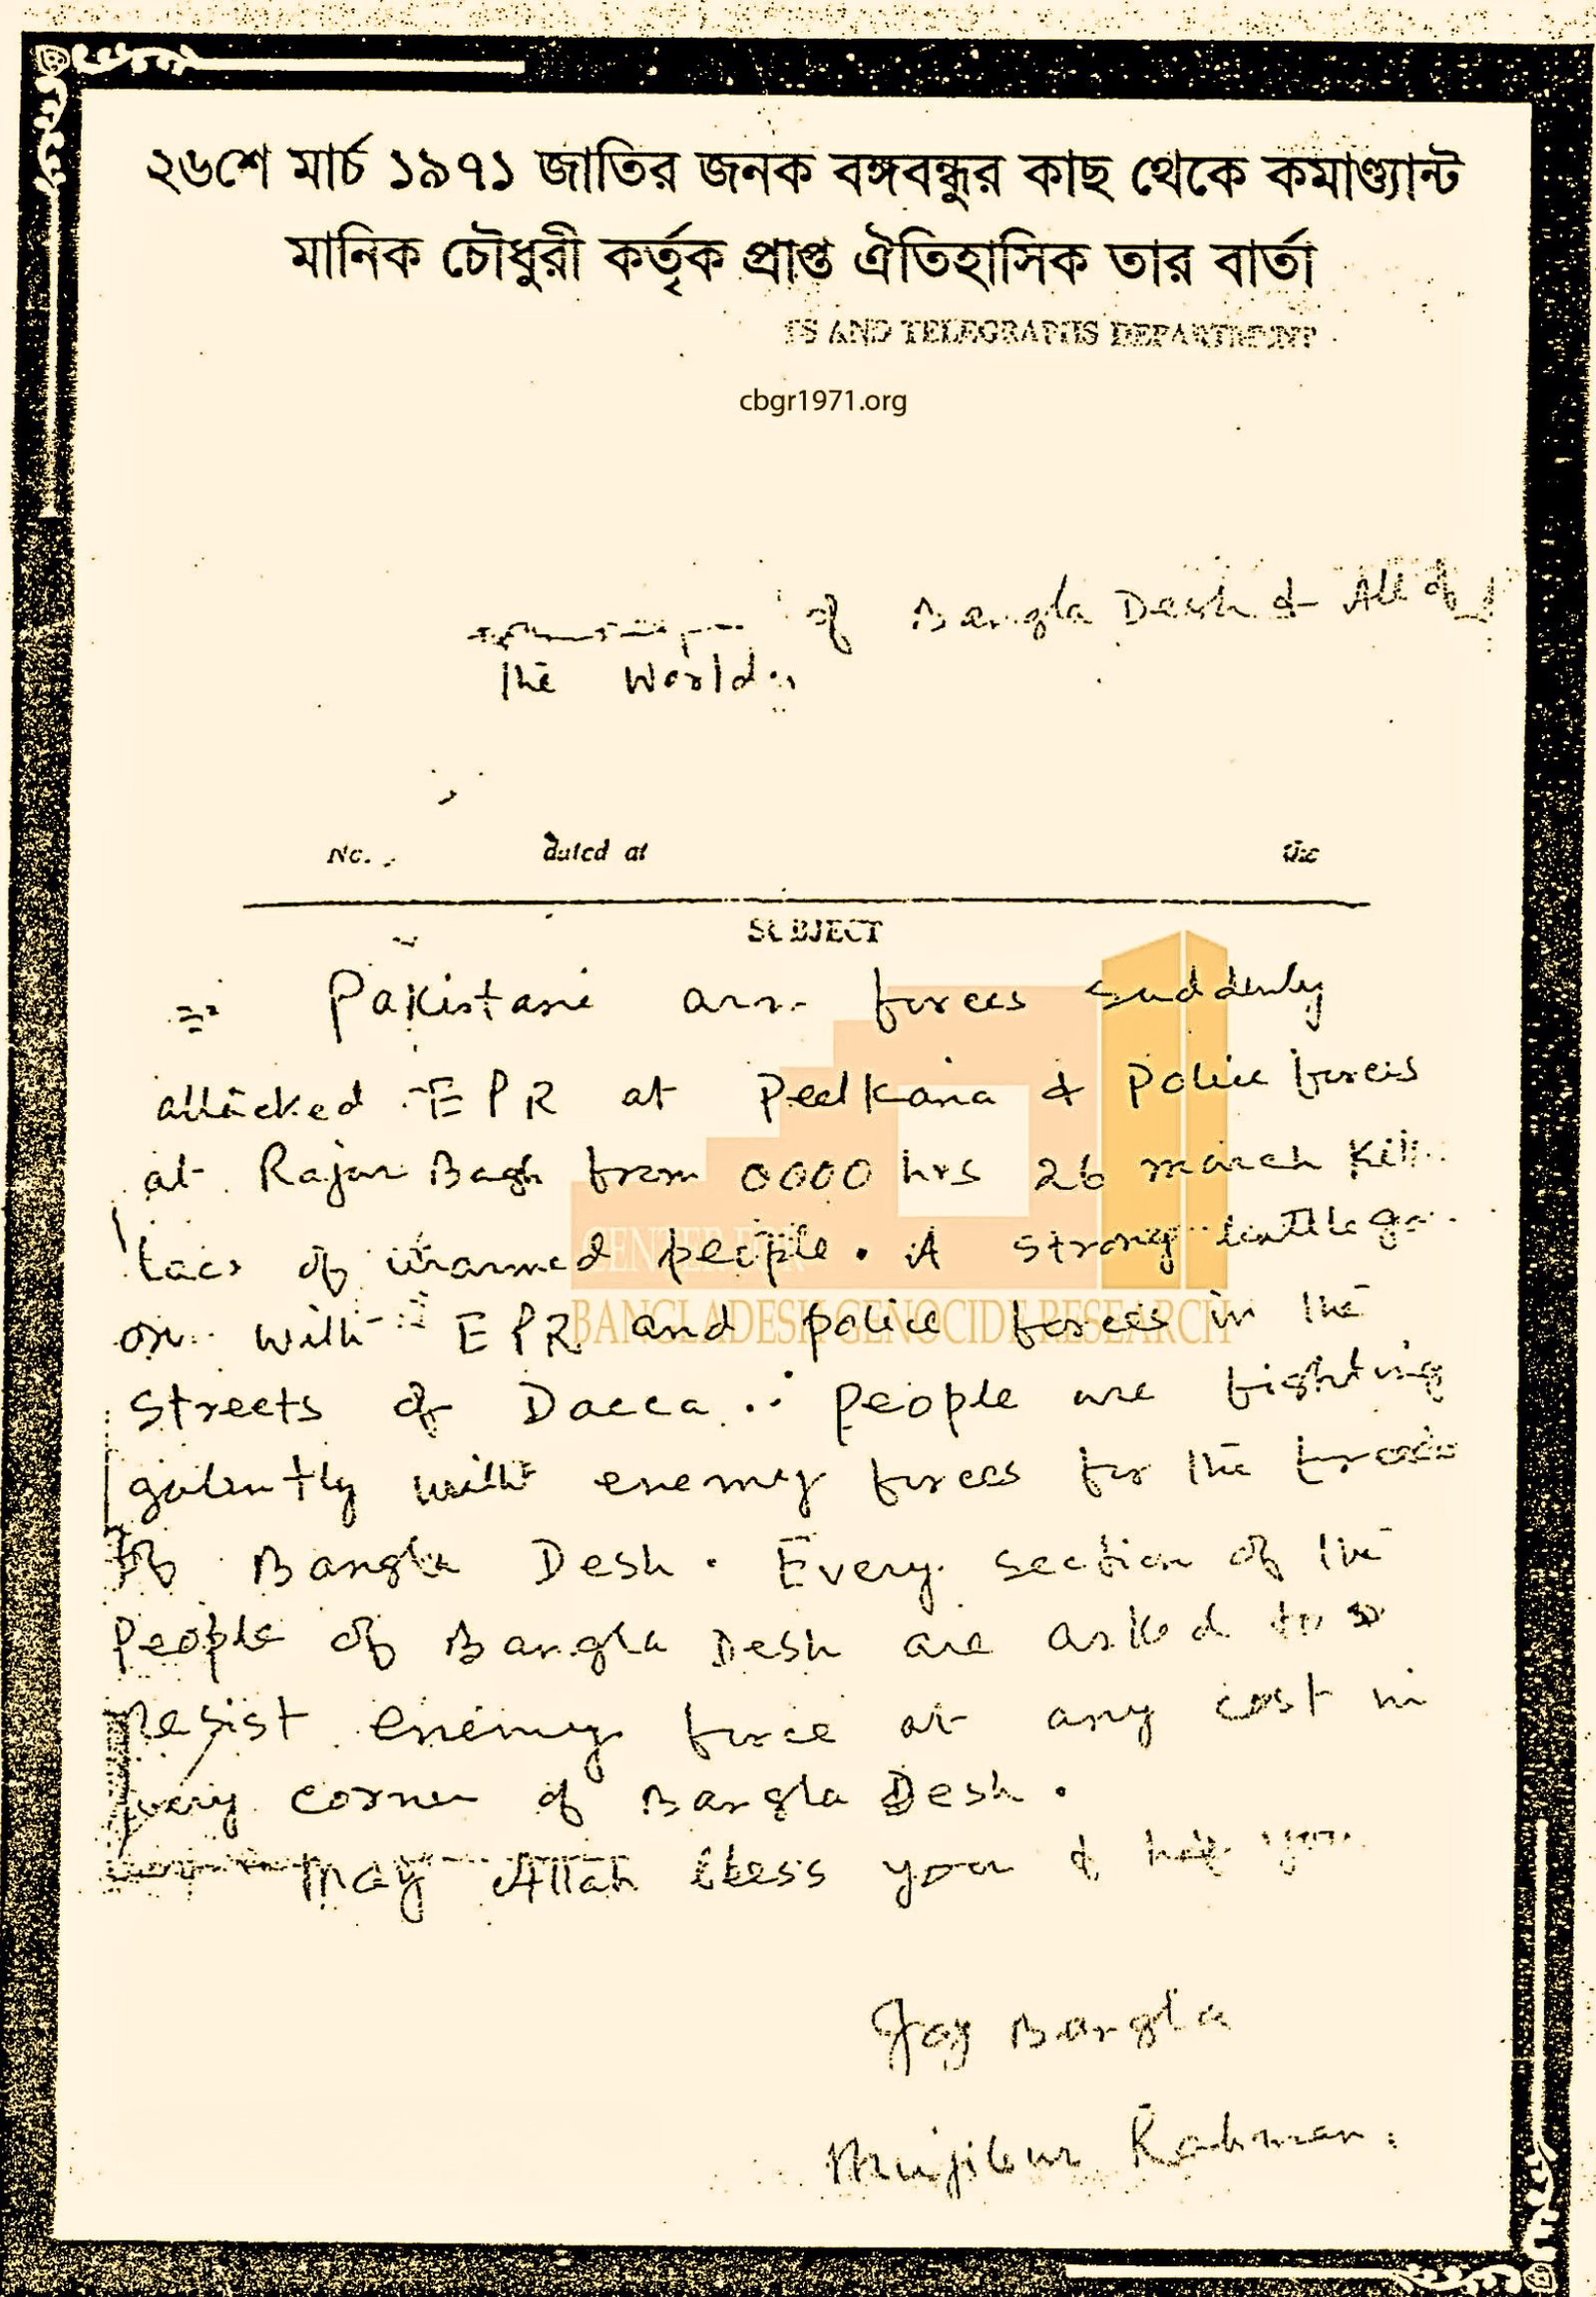 ২৬শে মার্চ ১৯৭১ জাতির জনক বঙ্গবন্ধুর কাছ থেকে কমাণ্ড্যান্ট
মানিক চৌধুরী কর্তৃক প্রাপ্ত ঐতিহাসিক তার বার্তা
TS AND TELEGRAPHS DEPARTMENT
cbgr1971.org
of Bangla Desh & All of
The World.
No. dated at the
SUBJECT
Pakistani arm forces suddenly
attacked EPR at Peelkana & Police forces
at Rajar Bagh from 0000 hrs 26 march
lacs of unarmed people. A strong battle
on with EPR and police forces in the
CENTER FOR
BANGLADESH GENOCIDE RESEARCH
streets of Dacca. people are fighting
galently with enemy forces for the
of Bangla Desh. Every section of the
People of Bangla Desh are asked to
Resist enemy force at any cost in
every corner of Bangla Desh.
May Allah bless you &
Joy Bangla
Mujibur Rahman.